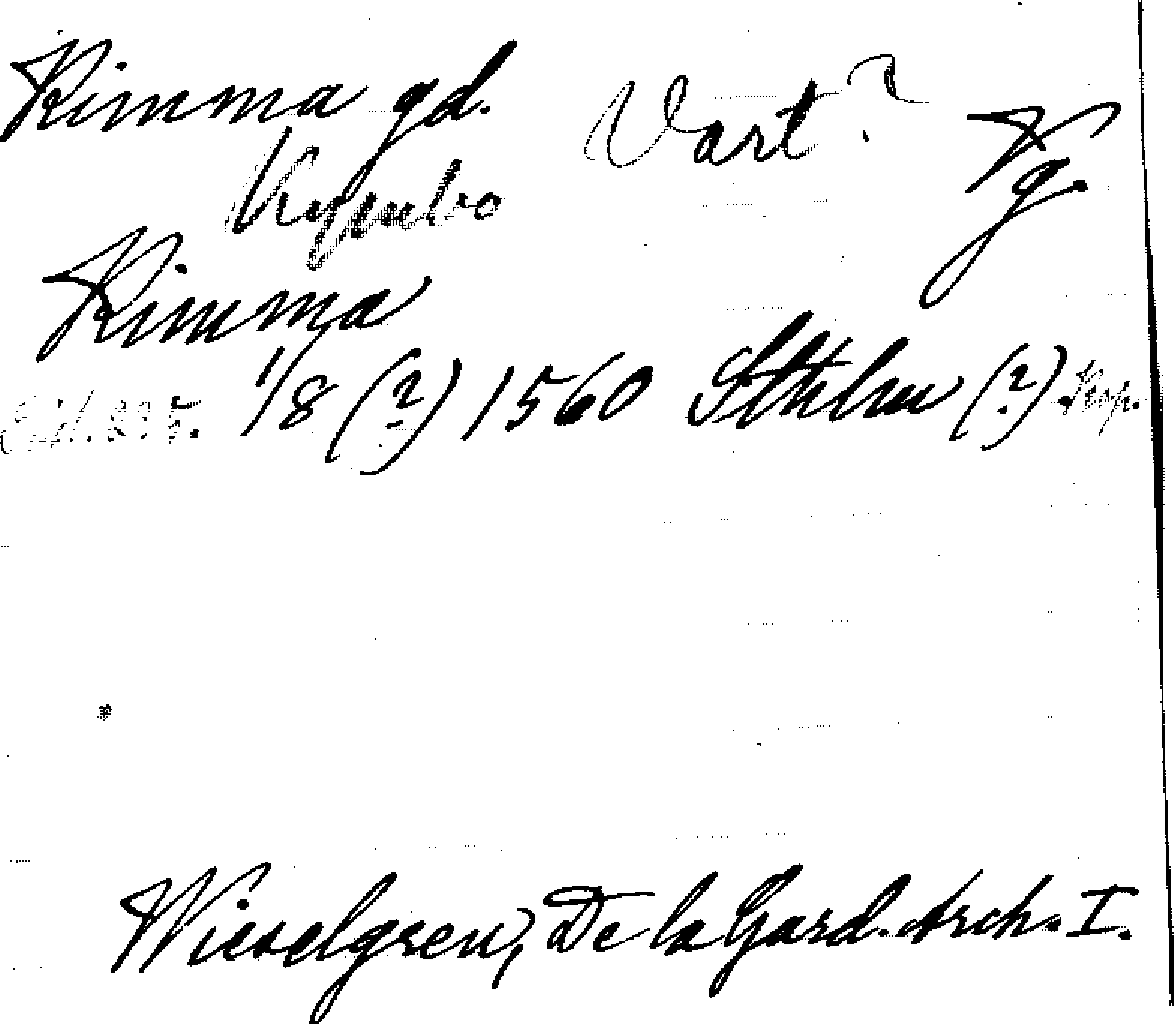 Rimma gd. Vart? Vg.
Rimma
1/8 (?) 1560 Sthlm (?). Kop.
Wieselgren, De la Gard. Arch. I.